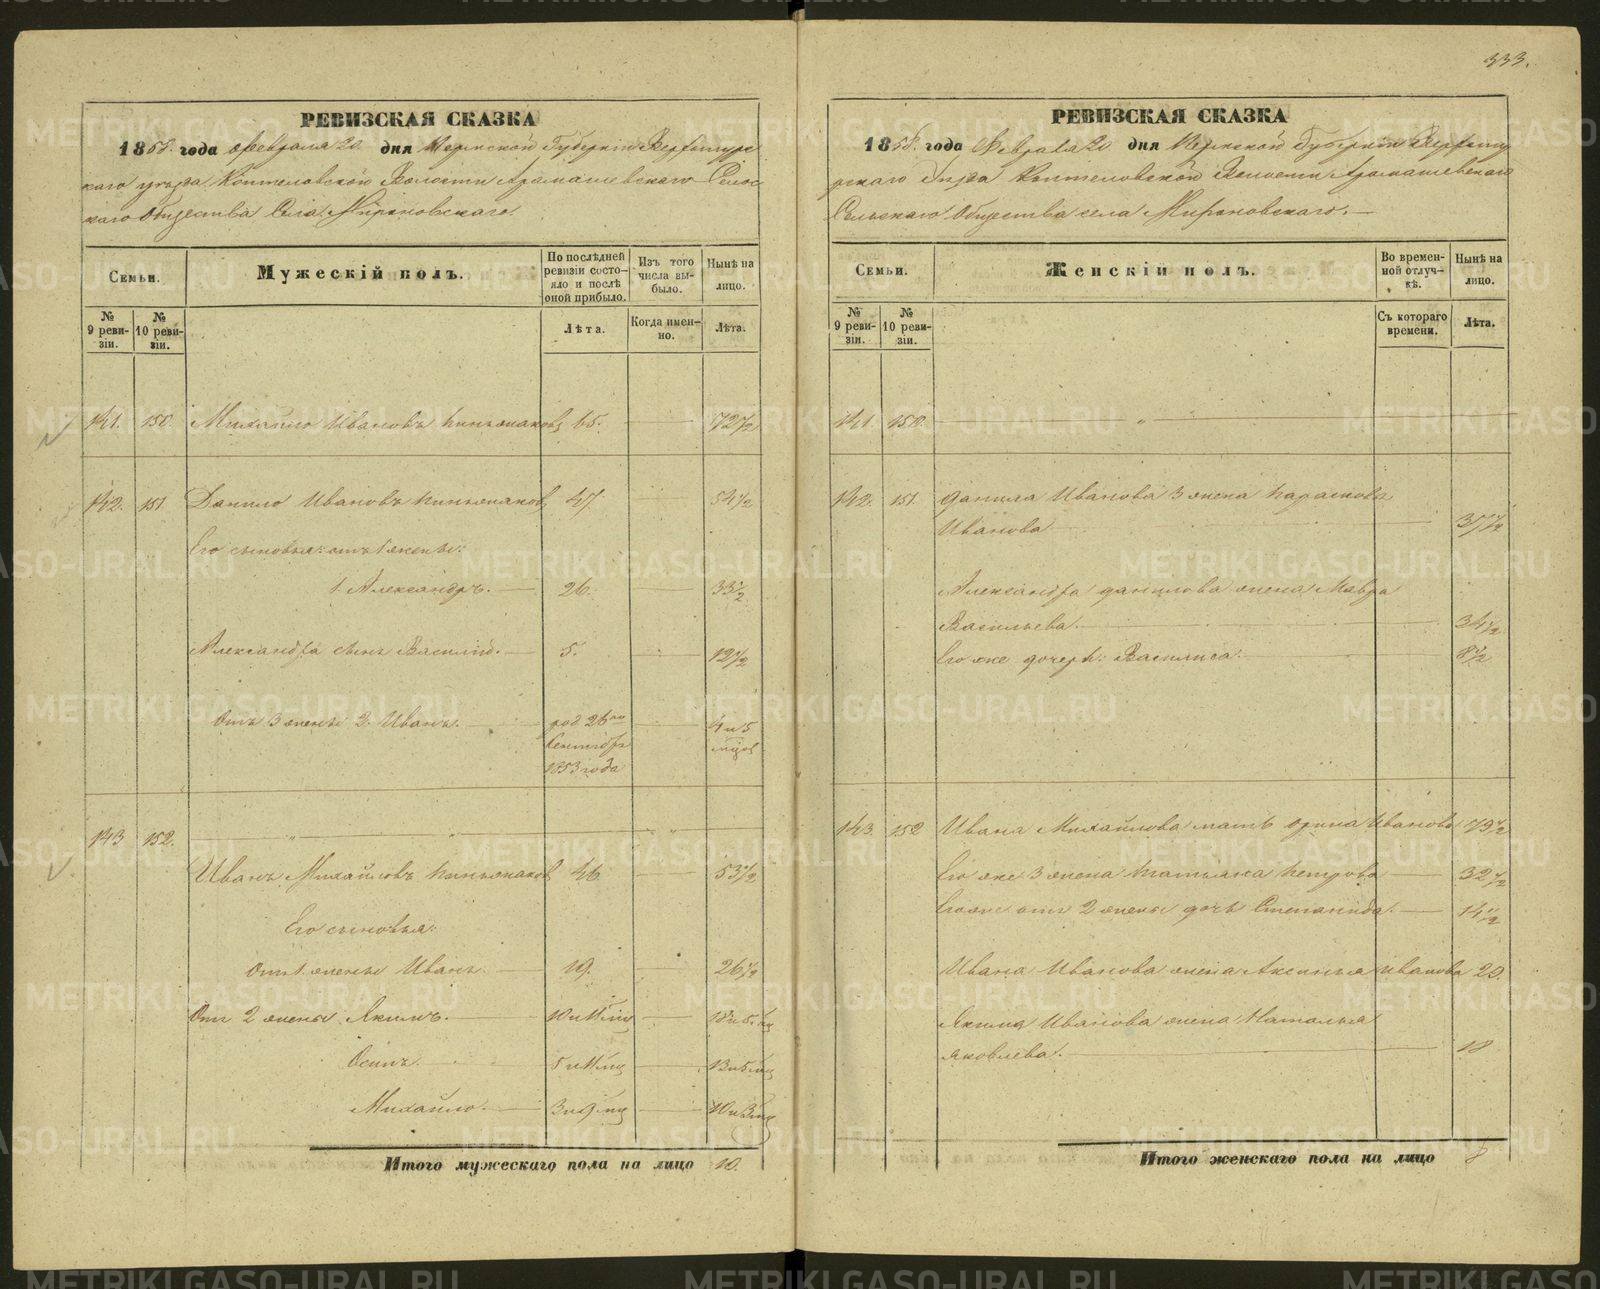 333.
РЕВИЗСКАЯ СКАЗКА
1858 года Февраля 20 дня Пермской Губерніи Верхотурс
каго уезда Коптеловской Волости Арамашевскаго Сельс
каго Общества Села Мироновскаго.
Семьи.
Мужескій полъ.
По последней ревизіи состояло и послѣ оной прибыло.
Изъ того числа выбыло.
Нынѣ на лицо.
№ 9 ревизіи.
№ 10 ревизіи.
Лѣта.
Когда именно.
Лѣта.
141. 150. Михайло Ивановъ 65. 72½
142. 151 Данило Ивановъ 47 54½
Его сыновья: отъ 1 жены:
1. Александръ. 26. 33½
Александра сынъ Василій. 5. 12½
Отъ 3 жены 2. Иванъ. род 26го 4 и 5
Сентября мцов
1853 года
143 152.
Иванъ Михайловъ 46 53½
Его сыновья:
От 1 жены Иванъ. 19. 26½
От 2 жены Якимъ. 10 и 11 мц 18 и 5 мц
Осипъ. 5 и 11 мц 13 и 5 мц
Михайло. 3 и 9 мц 10 и 3 мц
Итого мужескаго пола на лицо 10.
РЕВИЗСКАЯ СКАЗКА
1858 года Февраля 20 дня Пермской Губерніи Верхоту
рскаго Уезда Коптеловской Волости Арамашевскаго
Сельскаго Общества села Мироновскаго.
Семьи.
Женскій полъ.
Во временной отлучкѣ.
Нынѣ на лицо.
№ 9 ревизіи.
№ 10 ревизіи.
Съ котораго времени.
Лѣта.
141. 150.
142. 151. Данила Иванова 3 жена Параскова
Иванова 37½
Александра Данилова жена Мавра
Васильева. 34½
Его же дочерь: Василиса. 8½
143. 152 Ивана Михайлова мать Орина Иванова 79½
Его же 3 жена Татьяна Петрова 32½
Его же отъ 2 жены дочь Степанида. 14½
Ивана Иванова жена Аксинья Иванова 20.
Якима Иванова жена Наталья
Яковлева. 18
Итого женскаго пола на лицо 8
METRIKI.GASO-URAL.RU